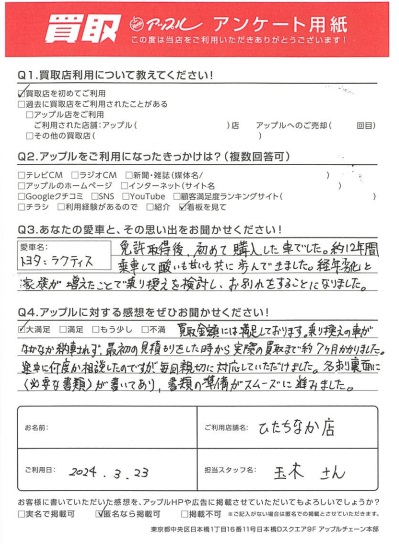 買取 アップル アンケート用紙
この度は当店をご利用いただきありがとうございます！
Q1.買取店利用について教えてください！
☑買取店を初めてご利用
□過去に買取店をご利用されたことがある
□アップル店をご利用
ご利用された店舗：アップル（　　　）店　アップルへのご売却（　　回目）
□その他の買取店（　　　）
Q2.アップルをご利用になったきっかけは？（複数回答可）
□テレビCM □ラジオCM □新聞・雑誌（媒体名/　　　）
□アップルのホームページ □インターネット（サイト名　　　）
□Googleクチコミ □SNS □YouTube □顧客満足度ランキングサイト（　　　）
□チラシ □利用経験があるので □紹介 ☑看板を見て
Q3.あなたの愛車と、その思い出をお聞かせください！
愛車名：
トヨタ：ラクティス
免許取得後、初めて購入した車でした。約12年間
乗車して酸いも甘いも共に歩んできました。経年劣化と
家族が増えたことで乗り換えを検討し、お別れをすることになりました。
Q4.アップルに対する感想をぜひお聞かせください！
☑大満足 □満足 □もう少し □不満 買取金額には満足しております。乗り換えの車が
なかなか納車されず、最初の見積りをした時から実際の買取まで約7ヶ月かかりました。
途中に何度か相談したのですが毎回親切に対応していただけました。名刺裏面に
（必要な書類）が書いてあり、書類の準備がスムーズに進みました。
お名前：
ご利用店舗名： ひたちなか店
ご利用日： 2024.3.23
担当スタッフ名： 玉木 さん
お客様に書いていただいた感想を、アップルHPや広告に掲載させていただいてもよろしいでしょうか？
□実名で掲載可 ☑匿名なら掲載可 □掲載不可 ※ご記入がない場合は匿名での掲載とさせていただきます。
東京都中央区日本橋1丁目16番11号日本橋Dスクエア9F アップルチェーン本部